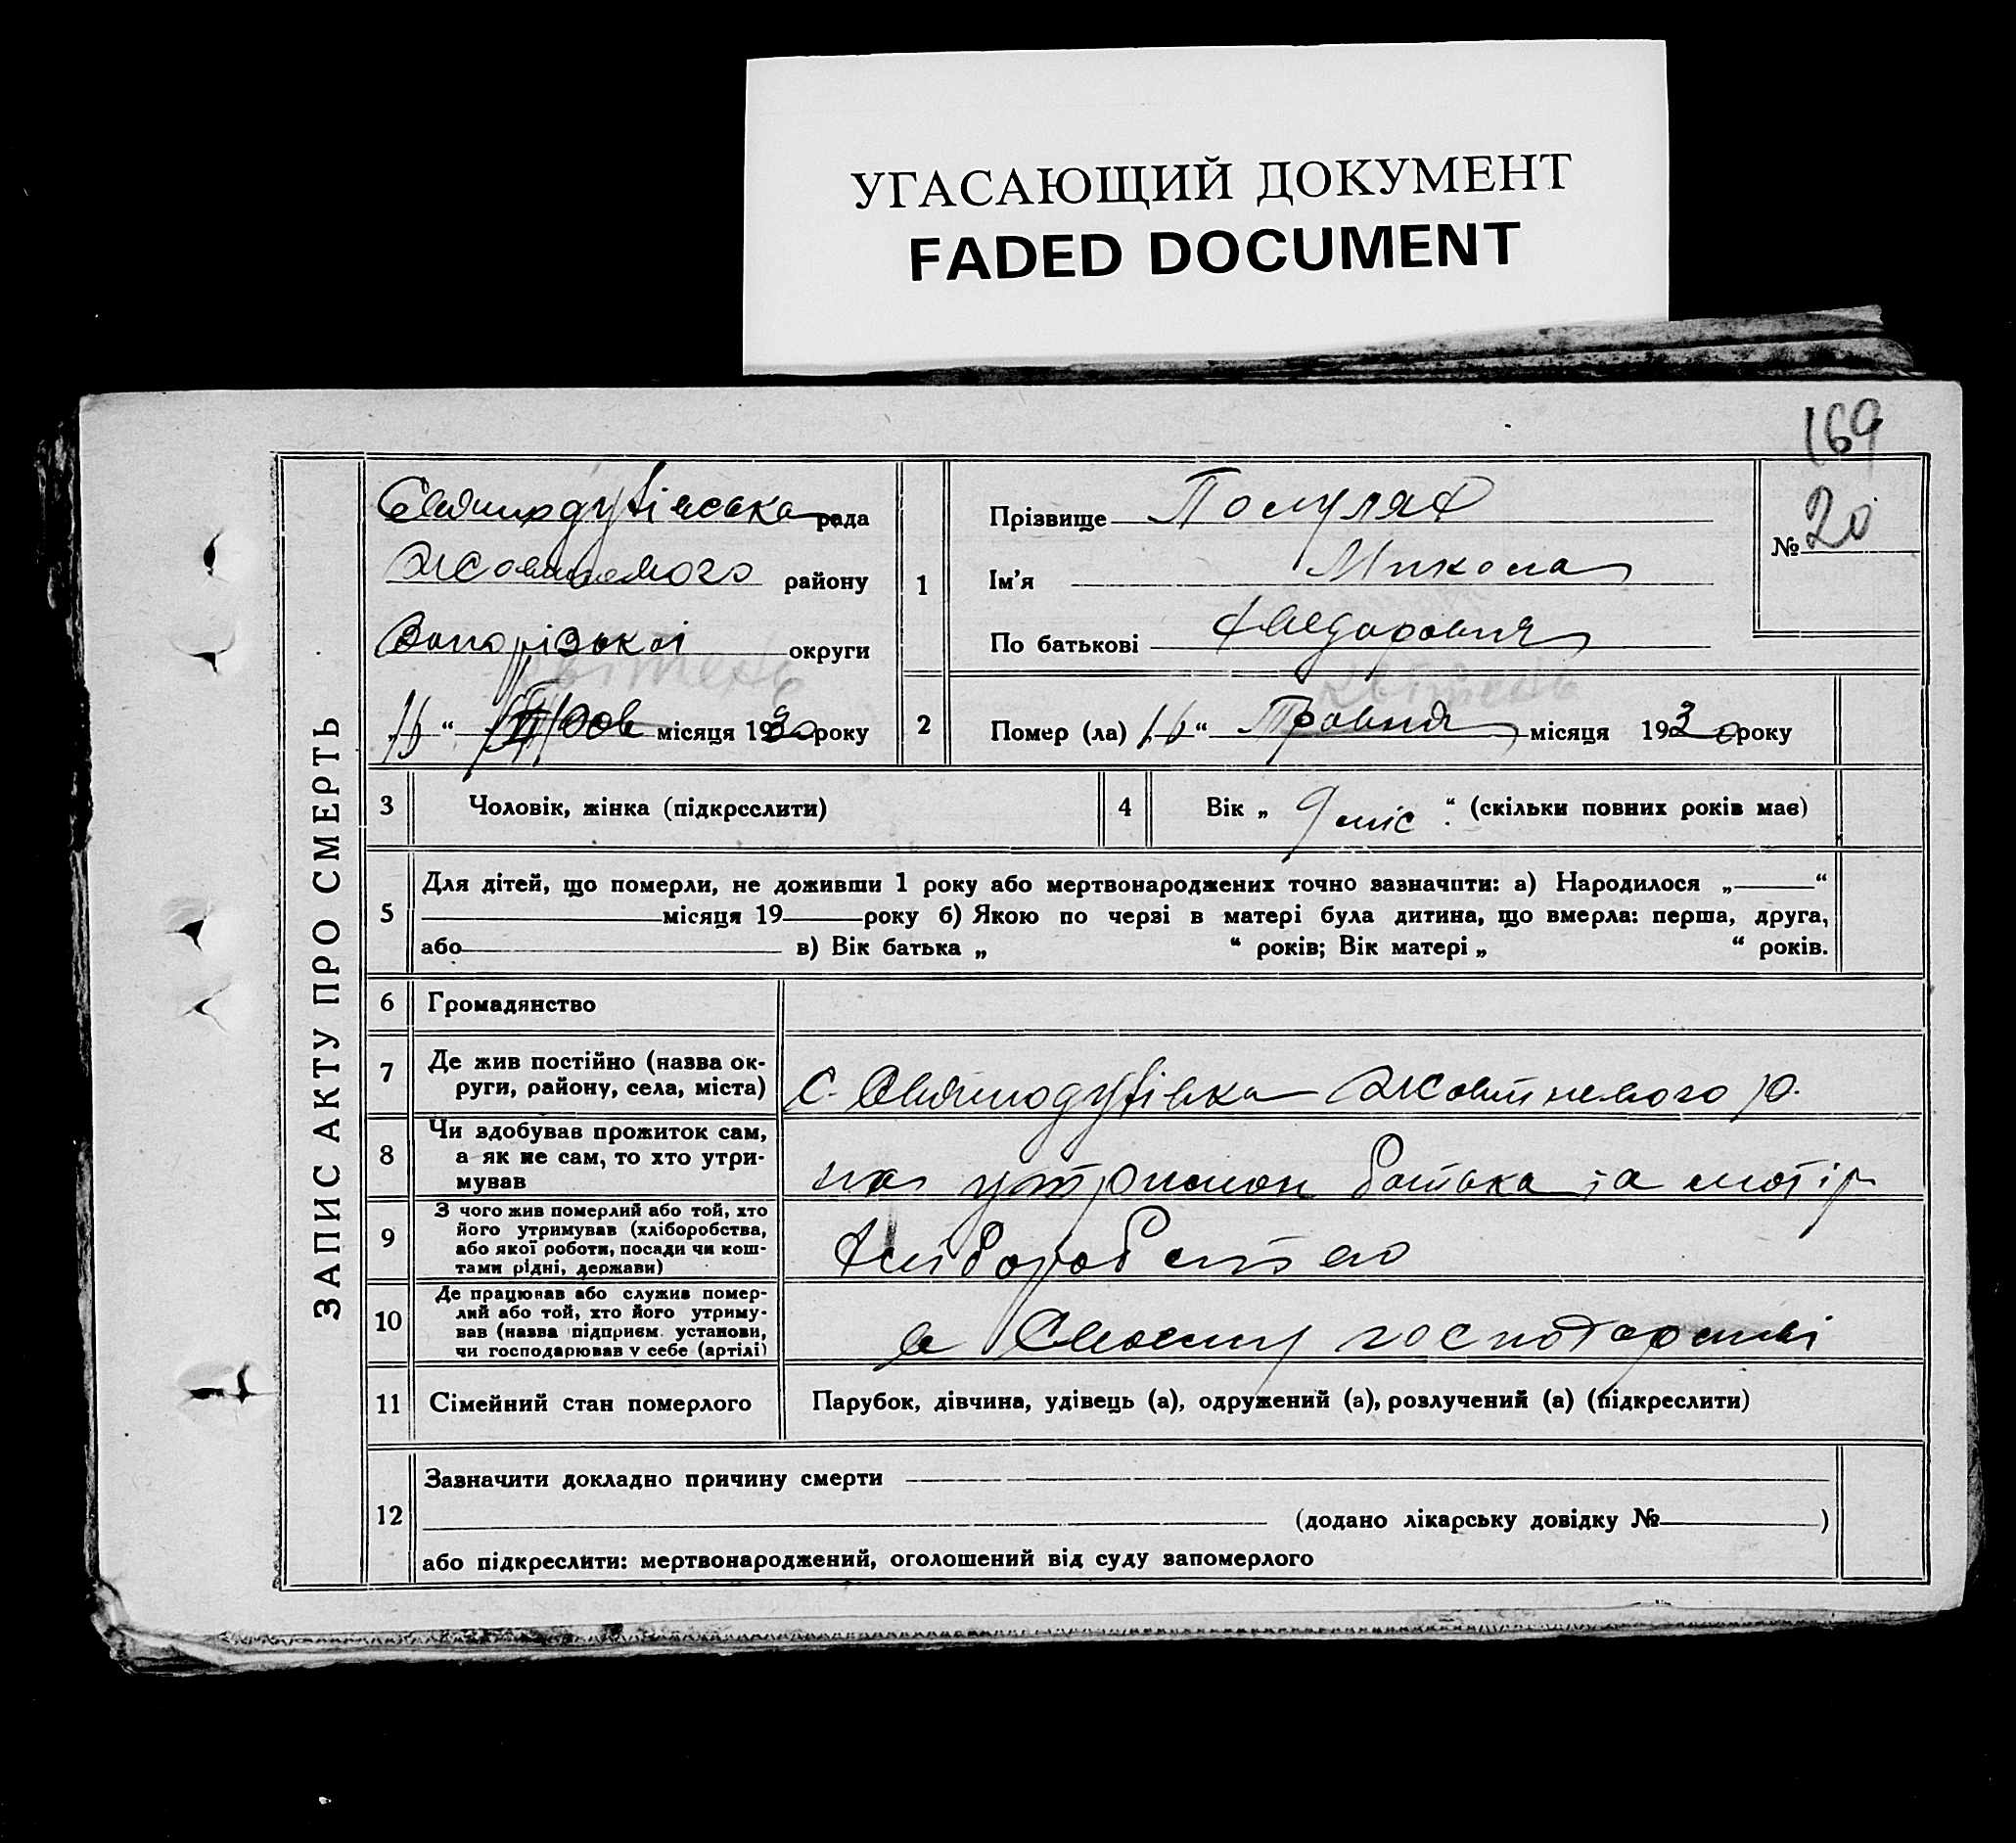 УГАСАЮЩИЙ ДОКУМЕНТ
FADED DOCUMENT
169
ЗАПИС АКТУ ПРО СМЕРТЬ
Святодухівська рада
Жовтневого району
Запорізької округи
квітень
16 “ місяця 1930 року
1
Прізвище Полулях
Ім’я Микола
По батькові Хведорович
№ 20
квітень
2
Помер (ла) 16 “ Травня місяця 1930 року
3 Чоловік, жінка (підкреслити)
4 Вік „ 9 міс “ (скільки повних років має)
5
Для дітей, що померли, не доживши 1 року або мертвонароджених точно зазначити: а) Народилося „ “
місяця 19 року б) Якою по черзі в матері була дитина, що вмерла: перша, друга,
або в) Вік батька „ “ років; Вік матері „ “ років.
6 Громадянство
7 Де жив постійно (назва ок-
руги, району, села, міста)
с. Святодухівка Жовтневого р.
8 Чи здобував прожиток сам,
а як не сам, то хто утри-
мував
на утриман батька та матір
9 З чого жив померлий або той, хто
його утримував (хліборобства,
або якої роботи, посади чи кош-
тами рідні, держави)
Хліборобство
10 Де працював або служив помер-
лий або той, хто його утриму-
вав (назва підприєм. установи,
чи господарював у себе (артілі)
в Своєму господарстві
11 Сімейний стан померлого
Парубок, дівчина, удівець (а), одружений (а), розлучений (а) (підкреслити)
12 Зазначити докладно причину смерти
(додано лікарську довідку № )
або підкреслити: мертвонароджений, оголошений від суду запомерлого